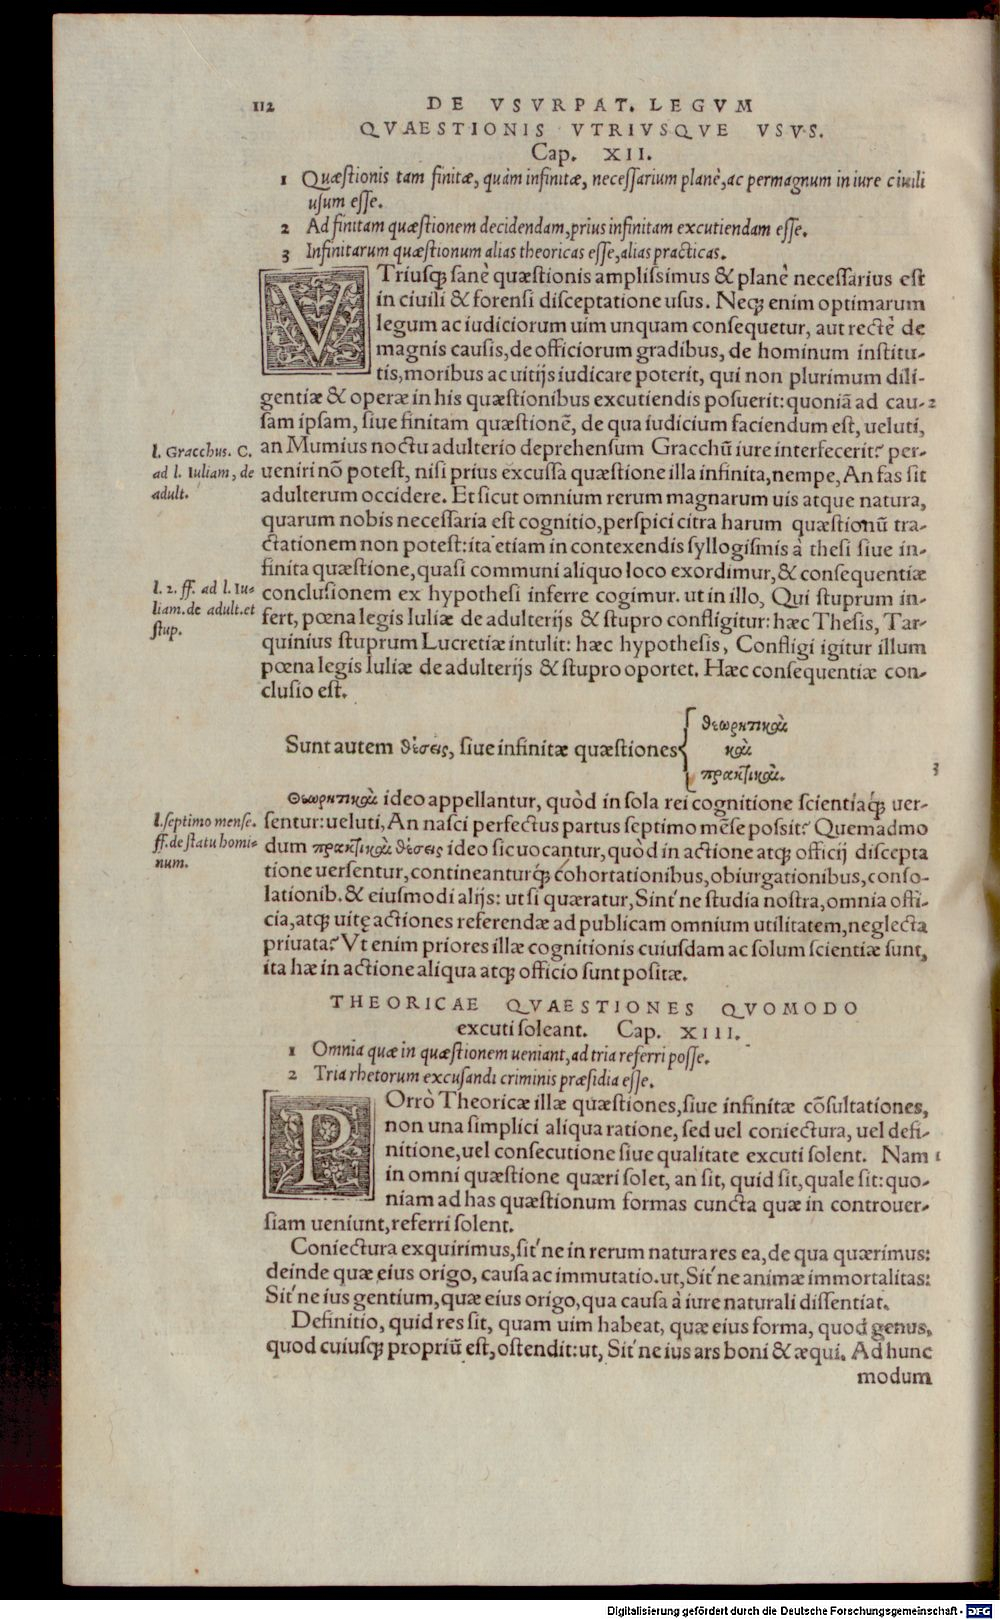 112
DE VSVRPAT. LEGVM
QVAESTIONIS VTRIVSQVE VSVS.
Cap. XII.
1 Quæstionis tam finitæ, quàm infinitæ, necessarium planè, ac permagnum in iure ciuili
usum esse.
2 Ad finitam quæstionem decidendam, prius infinitam excutiendam esse.
3 Infinitarum quæstionum alias theoricas esse, alias practicas.
VTriusq; sanè quæstionis amplissimus & planè necessarius est
in ciuili & forensi disceptatione usus. Neq; enim optimarum
legum ac iudiciorum uim unquam consequetur, aut rectè de
magnis causis, de officiorum gradibus, de hominum institu-
tis, moribus ac uitijs iudicare poterit, qui non plurimum dili-
gentiæ & operæ in his quæstionibus excutiendis posuerit: quoniā ad cau- 2
sam ipsam, siue finitam quæstionē, de qua iudicium faciendum est, ueluti,
l. Gracchus. C.
ad l. Iuliam, de
adult.
an Mumius noctu adulterio deprehensum Gracchū iure interfecerit? per-
ueniri nō potest, nisi prius excussa quæstione illa infinita, nempe, An fas sit
adulterum occidere. Et sicut omnium rerum magnarum uis atque natura,
quarum nobis necessaria est cognitio, perspici citra harum quæstionū tra-
ctationem non potest: ita etiam in contexendis syllogismis à thesi siue in-
finita quæstione, quasi communi aliquo loco exordimur, & consequentiæ
l. 2. ff. ad l. Iu-
liam. de adult. et
stup.
conclusionem ex hypothesi inferre cogimur. ut in illo, Qui stuprum in-
fert, pœna legis Iuliæ de adulterijs & stupro confligitur: hæc Thesis, Tar-
quinius stuprum Lucretiæ intulit: hæc hypothesis, Confligi igitur illum
pœna legis Iuliæ de adulterijs & stupro oportet. Hæc consequentiæ con-
clusio est.
Sunt autem θέσεις, siue infinitæ quæstiones {
θεωρητικαὶ
καὶ
πρακτικαὶ.
3
Θεωρητικαὶ ideo appellantur, quòd in sola rei cognitione scientiaq́; uer-
l. septimo mense.
ff. de statu homi-
num.
sentur: ueluti, An nasci perfectus partus septimo mēse possit? Quemadmo
dum πρακτικαὶ θέσεις ideo sic uocantur, quòd in actione atq; officij discepta
tione uersentur, contineanturq́; cohortationibus, obiurgationibus, conso-
lationib. & eiusmodi alijs: ut si quæratur, Sint'ne studia nostra, omnia offi-
cia, atq; uitę actiones referendæ ad publicam omnium utilitatem, neglecta
priuata? Vt enim priores illæ cognitionis cuiusdam ac solum scientiæ sunt,
ita hæ in actione aliqua atq; officio sunt positæ.
THEORICAE QVAESTIONES QVOMODO
excuti soleant. Cap. XIII.
1 Omnia quæ in quæstionem ueniant, ad tria referri posse.
2 Tria rhetorum excusandi criminis præsidia esse.
POrrò Theoricæ illæ quæstiones, siue infinitæ cōsultationes,
non una simplici aliqua ratione, sed uel coniectura, uel defi-
nitione, uel consecutione siue qualitate excuti solent. Nam 1
in omni quæstione quæri solet, an sit, quid sit, quale sit: quo-
niam ad has quæstionum formas cuncta quæ in controuer-
siam ueniunt, referri solent.
Coniectura exquirimus, sit'ne in rerum natura res ea, de qua quærimus:
deinde quæ eius origo, causa ac immutatio. ut, Sit'ne animæ immortalitas:
Sit'ne ius gentium, quæ eius origo, qua causa à iure naturali dissentiat.
Definitio, quid res sit, quam uim habeat, quæ eius forma, quod genus,
quod cuiusq; propriū est, ostendit: ut, Sit'ne ius ars boni & æqui. Ad hunc
modum
Digitalisierung gefördert durch die Deutsche Forschungsgemeinschaft - DFG